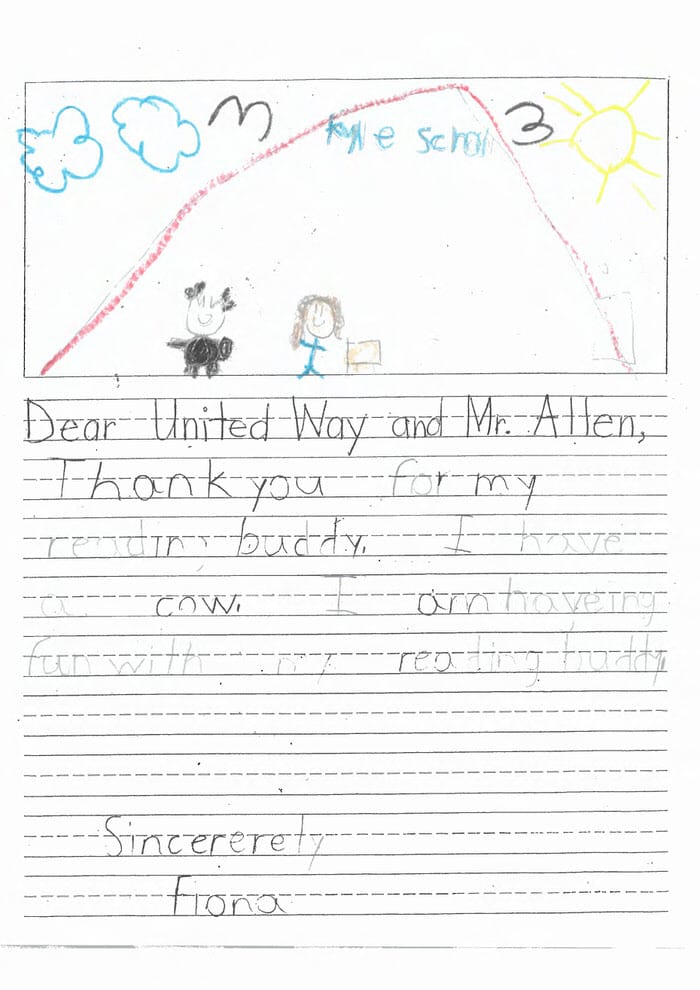 Kyle School
Dear United Way and Mr. Allen,
Thank you for my
reading buddy. I have
a cow. I am haveing
fun with my reading buddy.
Sincererely
Fiona